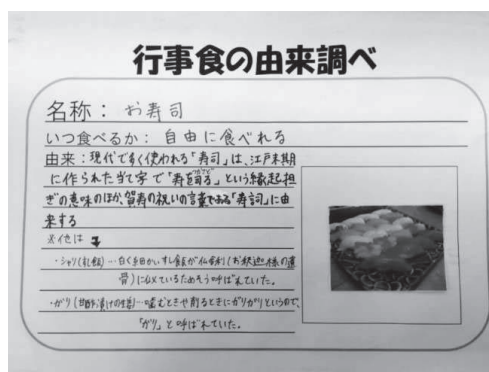 行事食の由来調べ
名称: お寿司
いつ食べるか: 自由に食べれる
由来:現代でよく使われる「寿司」は、江戸末期
に作られた当て字で「寿を司る」という縁起担
ぎの意味のほか、賀寿の祝いの言葉である「寿詞」に由
来する
※他は
・シャリ(礼飯)…白く細かいすし飯が仏舎利(お釈迦様の遺
骨)に似ているためそう呼ばれていた。
・ガリ(甘酢漬けの生姜)…噛むときや削るときにガリガリというので、
「ガリ」と呼ばれていた。